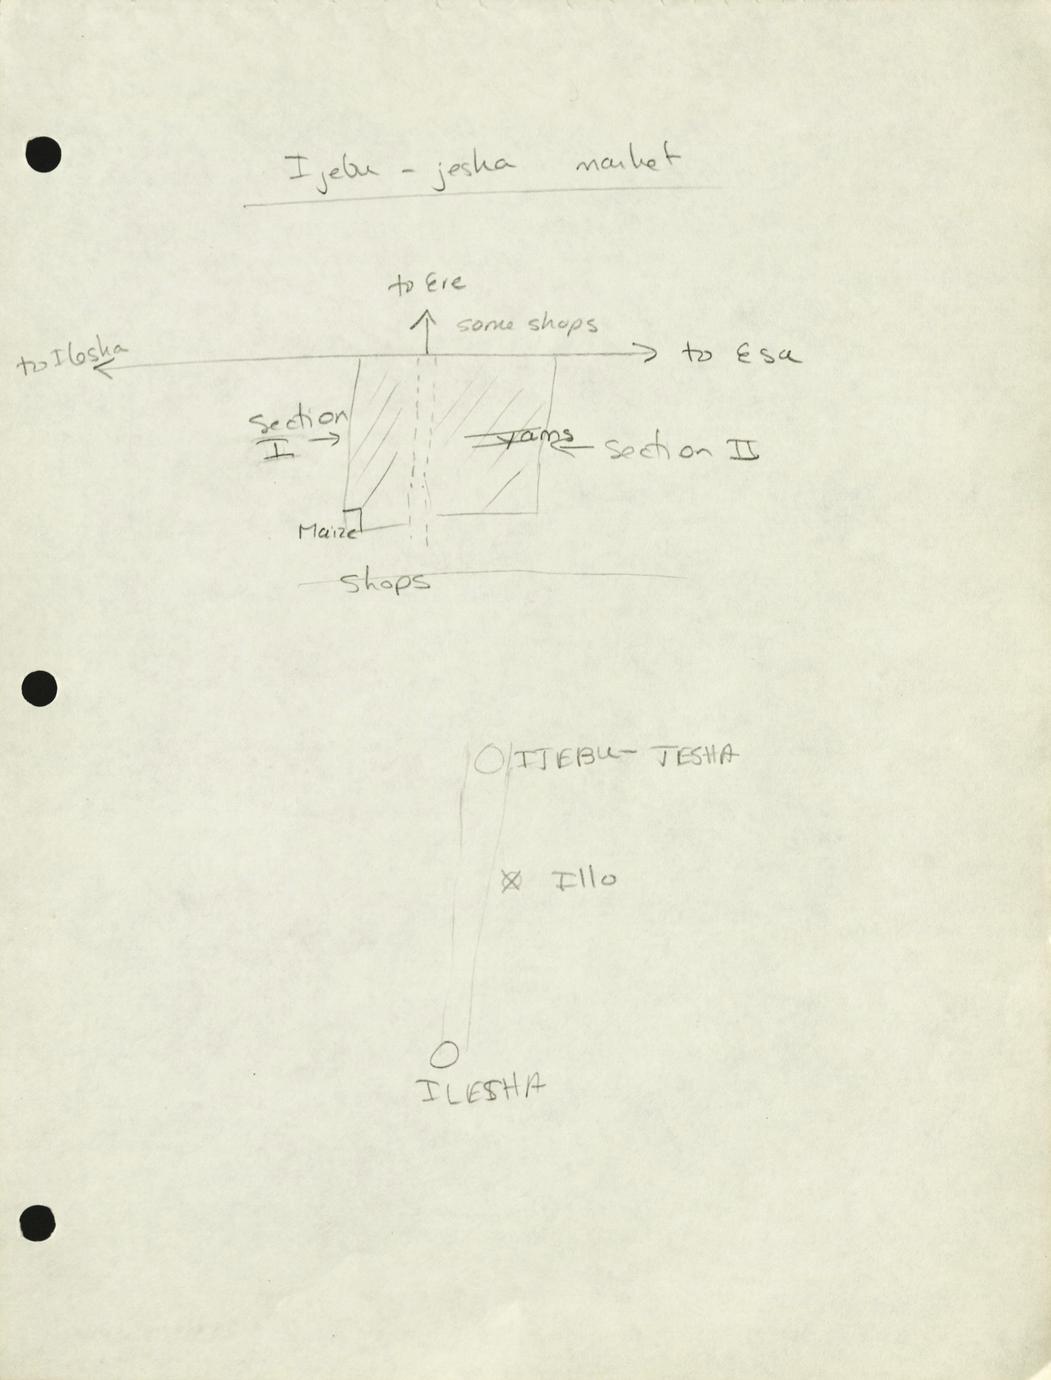 Ijebu - jesha market
to Ere
some shops
to Ilesha
to Esa
Section
I
Yams
Section II
Maize
Shops
IJEBU- JESHA
Illo
ILESHA